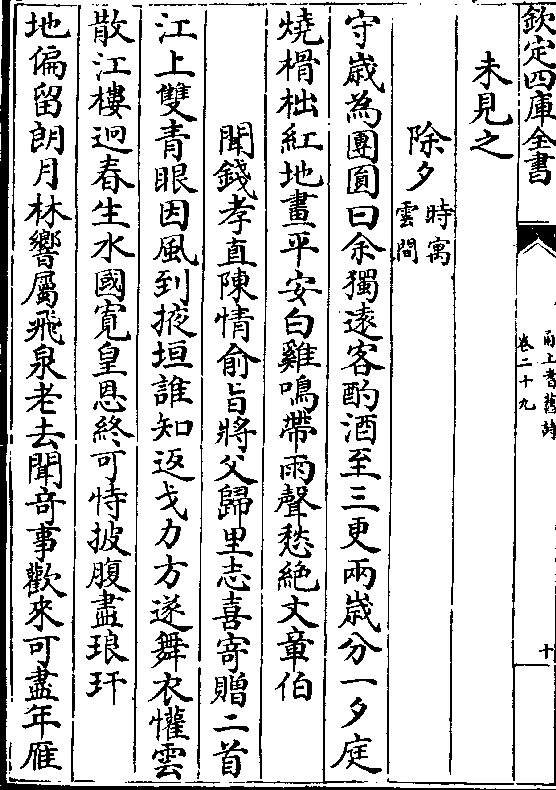 欽定四庫全書
甬上耆舊詩
卷二十九
十
未見之
除夕時寓雲間
守歲為團圓曰余獨遠客酌酒至三更兩歲分一夕庭
燒榾柮紅地畫平安白雞鳴帶雨聲愁絶文章伯
聞錢孝直陳情俞旨將父歸里志喜寄贈二首
江上雙青眼因風到掖垣誰知返戈力方遂舞衣懽雲
散江樓迥春生水國寛皇恩終可恃披腹盡琅玕
地偏留朗月林響屬飛泉老去聞竒事歡來可盡年雁